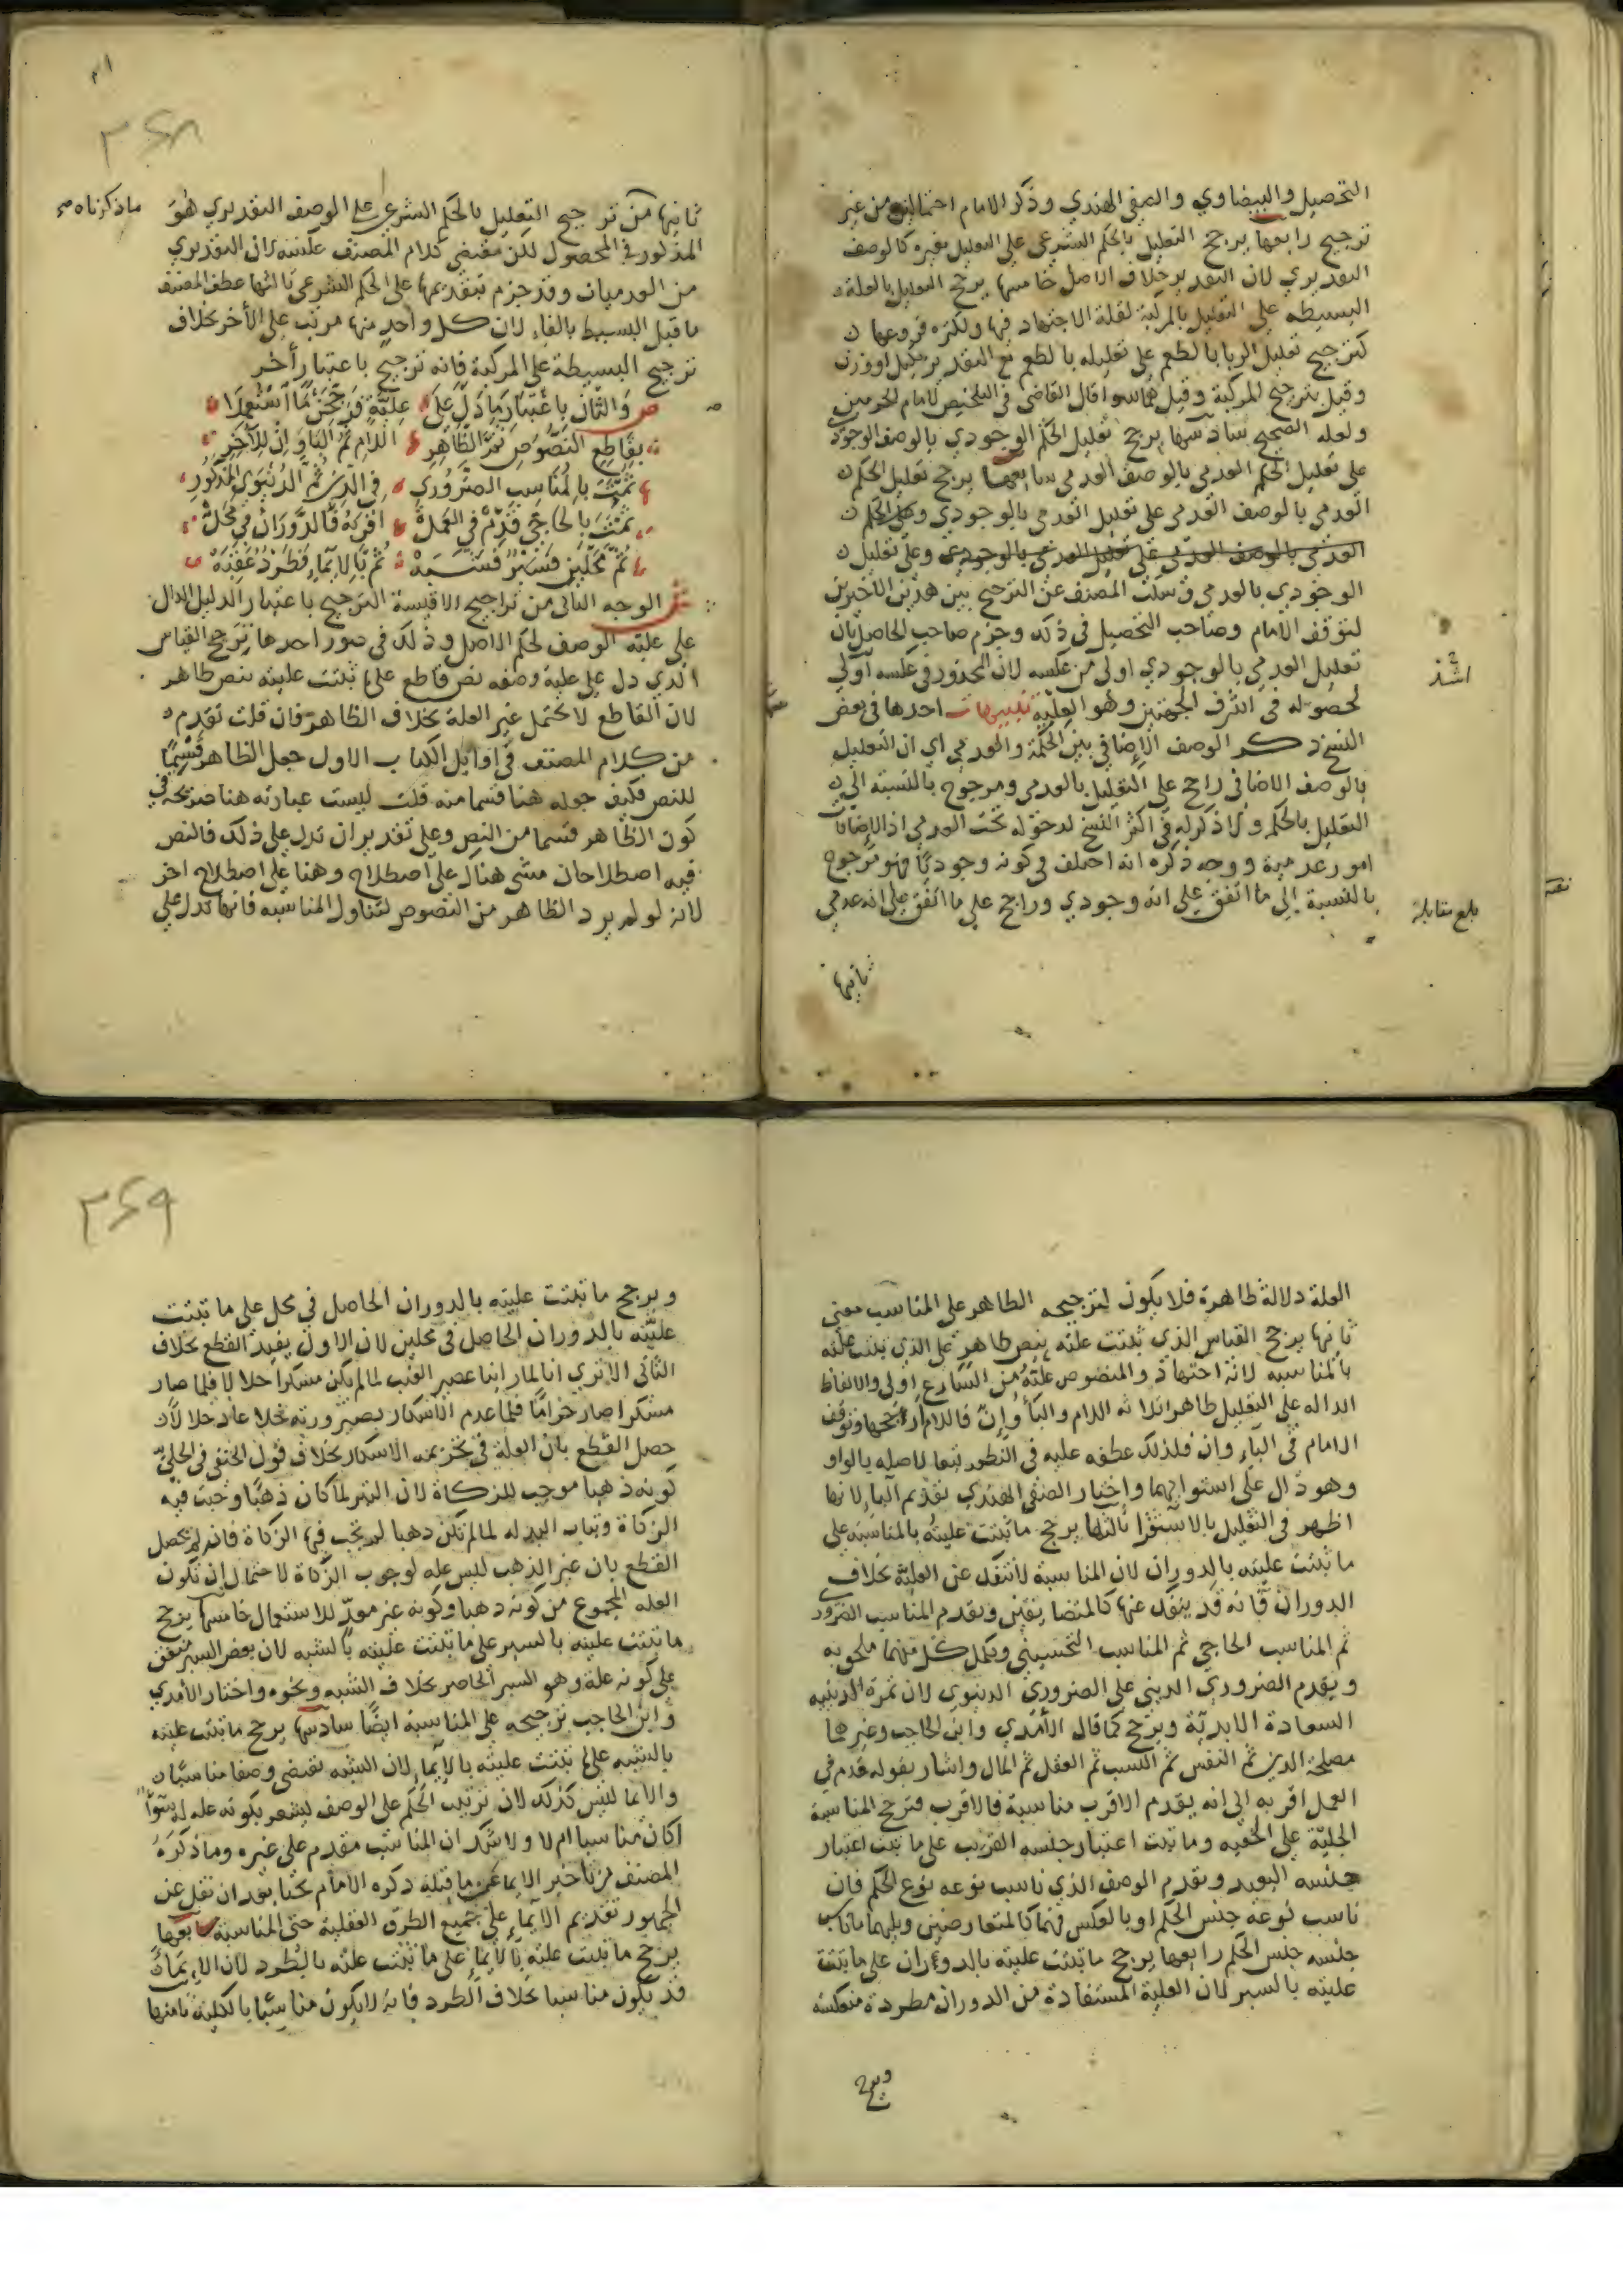 التحصيل والبيضاوي والصفي الهندي وذكر الامام احتمالين من غير
ترجيح رابعها يرجح التعليل بالحكم الشرعي على التعليل بغيره كالوصف
التقديري لان التقدير خلاف الاصل خامسها يرجح التعليل بالعلة
البسيطه على التعليل بالمركبة لقلة الاجتهاد فيها ولكثره فروعها
كترجيح تعليل الربا بالطعم على تعليله بالطعم مع التقدير بكيل او وزن
وقيل بترجيح المركبة وقيل هما سوا قال القاضي في التلخيص لامام الحرمين
ولعله الصحيح سادسها يرجح تعليل الحكم الوجودي بالوصف الوجودي
على تعليل الحكم العدمي بالوصف العدمي سابعها يرجح تعليل الحكم
العدمي بالوصف العدمي على تعليل العدمي بالوجودي وعلى الحكم
العدمي بالوصف العدمي على تعليل العدمي بالوجودي وعلى تعليل
الوجودي بالعدمي وسكت المصنف عن الترجيح بين هذين الاخيرين
لتوقف الامام وصاحب التحصيل في ذلك وجزم صاحب الحاصل بان
تعليل العدمي بالوجودي اولى من عكسه لان المحذور في عكسه اولى
اشد
لحصوله في اشرف الجهتين وهو العلية تنبيهات احدها في بعض
النسخ ذكر الوصف الاضافي بين الحكمة والعدمي اي ان التعليل
بالوصف الاضافي راجح على التعليل بالعدمي ومرجوح بالنسبة الى
التعليل بالحكم ولا ذكر له في اكثر النسخ لدخوله تحت العدمي اذ الاضافات
امور عدمية ووجه ذكره انه اختلف في كونه وجوديا فهو مرجوح
بالنسبة الى ما اتفق على انه وجودي وراجح على ما اتفق على انه عدمي
بلغ مقابلة
ثانيها
ثانيها من ترجيح التعليل بالحكم الشرعي على الوصف التقديري هو
ما ذكرناه صح
المذكور في المحصول لكن مقتضى كلام المصنف عكسه لان التقديري
من العدميات وقد جزم بتقديمها على الحكم الشرعي ثالثها عطف المصنف
ما قبل البسيط بالفاء لان كل واحد منها مرتب على الآخر بخلاف
ترجيح البسيطة على المركبة فانه ترجيح باعتبار آخر
ص والثان باعتبار ما دل على علية فرجحن ما استعملا
بقاطع النصوص ثم الظاهر اللام ثم البا وان للآخر
ثمت بالمناسب الضروري في الدين ثم الدنيوي المذكور
ثمت بالحاجي قدم في العمل اقربه فالدوران في محل
ثم محلين فسبر فشبه ثم بالايماء فطرد عقبه
ش الوجه الثاني من تراجيح الاقيسة الترجيح باعتبار الدليل الدال
على علية الوصف لحكم الاصل وذلك في صور احدها يرجح القياس
الذي دل على علية وصفه نص قاطع على ما ثبتت عليته بنص ظاهر
لان القاطع لا يحتمل غير العلة بخلاف الظاهر فان قلت تقدم
من كلام المصنف في اوايل الكتاب الاول جعل الظاهر قسيما
للنص فكيف جعله هنا قسما منه قلت ليست عبارته هنا صريحة في
كون الظاهر قسما من النص وعلى تقدير ان تدل على ذلك فالنص
فيه اصطلاحان مشى هناك على اصطلاح وهنا على اصطلاح اخر
لانه لو لم يرد الظاهر من النصوص لتناول المناسبه فانها تدل على
٣٤٨
العلة دلالة ظاهرة فلا يكون لترجيحه الظاهر على المناسب معنى
ثانيها يرجح القياس الذي ثبتت عليته بنص ظاهر على الذي ثبتت عليته
بالمناسبه لانه اجتهاد والمنصوص عليته من الشارع اولى والالفاظ
الداله على التعليل ظاهرا ثلاثه اللام والبا وان فاللام ارجحها وتوقف
الامام في الباء وان فلذلك عطفه عليه في النظم تبعا لاصله بالواو
وهو دال على استوايهما واختار الصفي الهندي تقديم البا لانها
اظهر في التعليل بالاستقرا ثالثها يرجح ما ثبتت عليته بالمناسبة على
ما ثبتت عليته بالدوران لان المناسبة لا تنفك عن العلية بخلاف
الدوران فانه قد ينفك عنها كالمتضايفين ويقدم المناسب الضروري
ثم المناسب الحاجي ثم المناسب التحسيني ومكمل كل منهما ملحق به
ويقدم الضروري الديني على الضروري الدنيوي لان ثمرة الدينيه
السعادة الابدية ويرجح كما قال الآمدي وابن الحاجب وغيرهما
مصلحة الدين ثم النفس ثم النسب ثم العقل ثم المال واشار بقوله قدم في
العمل اقربه الى انه يقدم الاقرب مناسبة فالاقرب فترجح المناسبة
الجليّة على الخفيه وما ثبت اعتبار جنسه القريب على ما ثبت اعتبار
جنسه البعيد ويقدم الوصف الذي ناسب نوعه نوع الحكم فان
ناسب نوعه جنس الحكم او بالعكس فهما كالمتعارضين ويليهما ما ناسب
جنسه جنس الحكم رابعها يرجح ما ثبتت عليته بالدوران على ما ثبتت
عليته بالسبر لان العلية المستفادة من الدوران مطردة منعكسه
ويرجح
ويرجح ما ثبتت عليته بالدوران الحاصل في محل على ما ثبتت
عليته بالدوران الحاصل في محلين لان الاول يفيد القطع بخلاف
الثاني الا ترى انا لما راينا عصير العنب لما لم يكن مسكرا حلالا فلما صار
مسكرا صار حراما فلما عدم الاسكار بصيرورته خلا عاد حلالا
حصل القطع بان العلة في تحريمه الاسكار بخلاف قول الحنفي في الحلي
كونه ذهبا موجب للزكاة لان التبر لما كان ذهبا وجبت فيه
الزكاة وثياب البذله لما لم تكن ذهبا لم تجب فيها الزكاة فانه لم يحصل
القطع بان غير الذهب ليس عله لوجوب الزكاة لاحتمال ان تكون
العله المجموع من كونه ذهبا وكونه غير معدّ للاستعمال خامسها يرجح
ما ثبتت عليته بالسبر على ما ثبتت عليته بالشبه لان بعض السبر متفق
على كونه علة وهو السبر الحاصر بخلاف الشبه ونحوه واختار الآمدي
وابن الحاجب ترجيحه على المناسبة ايضا سادسها يرجح ما ثبتت عليته
بالشبه على ما ثبتت عليته بالايماء لان الشبه يقتضي وصفا مناسبا
والايما ليس كذلك لان ترتيب الحكم على الوصف يشعر بكونه علة له سوا
اكان مناسبا ام لا ولا شك ان المناسب مقدم على غيره وما ذكره
المصنف من تاخير الايما عن ما قبله ذكره الامام بحثا بعد ان نقل عن
الجمهور تقديم الايماء على جميع الطرق العقلية حتى المناسبة سابعها
يرجح ما ثبتت عليته بالايماء على ما ثبتت عليته بالطرد لان الايماء
قد يكون مناسبا بخلاف الطرد فانه لا يكون مناسبا بالكلية ثامنها
٣٤٩